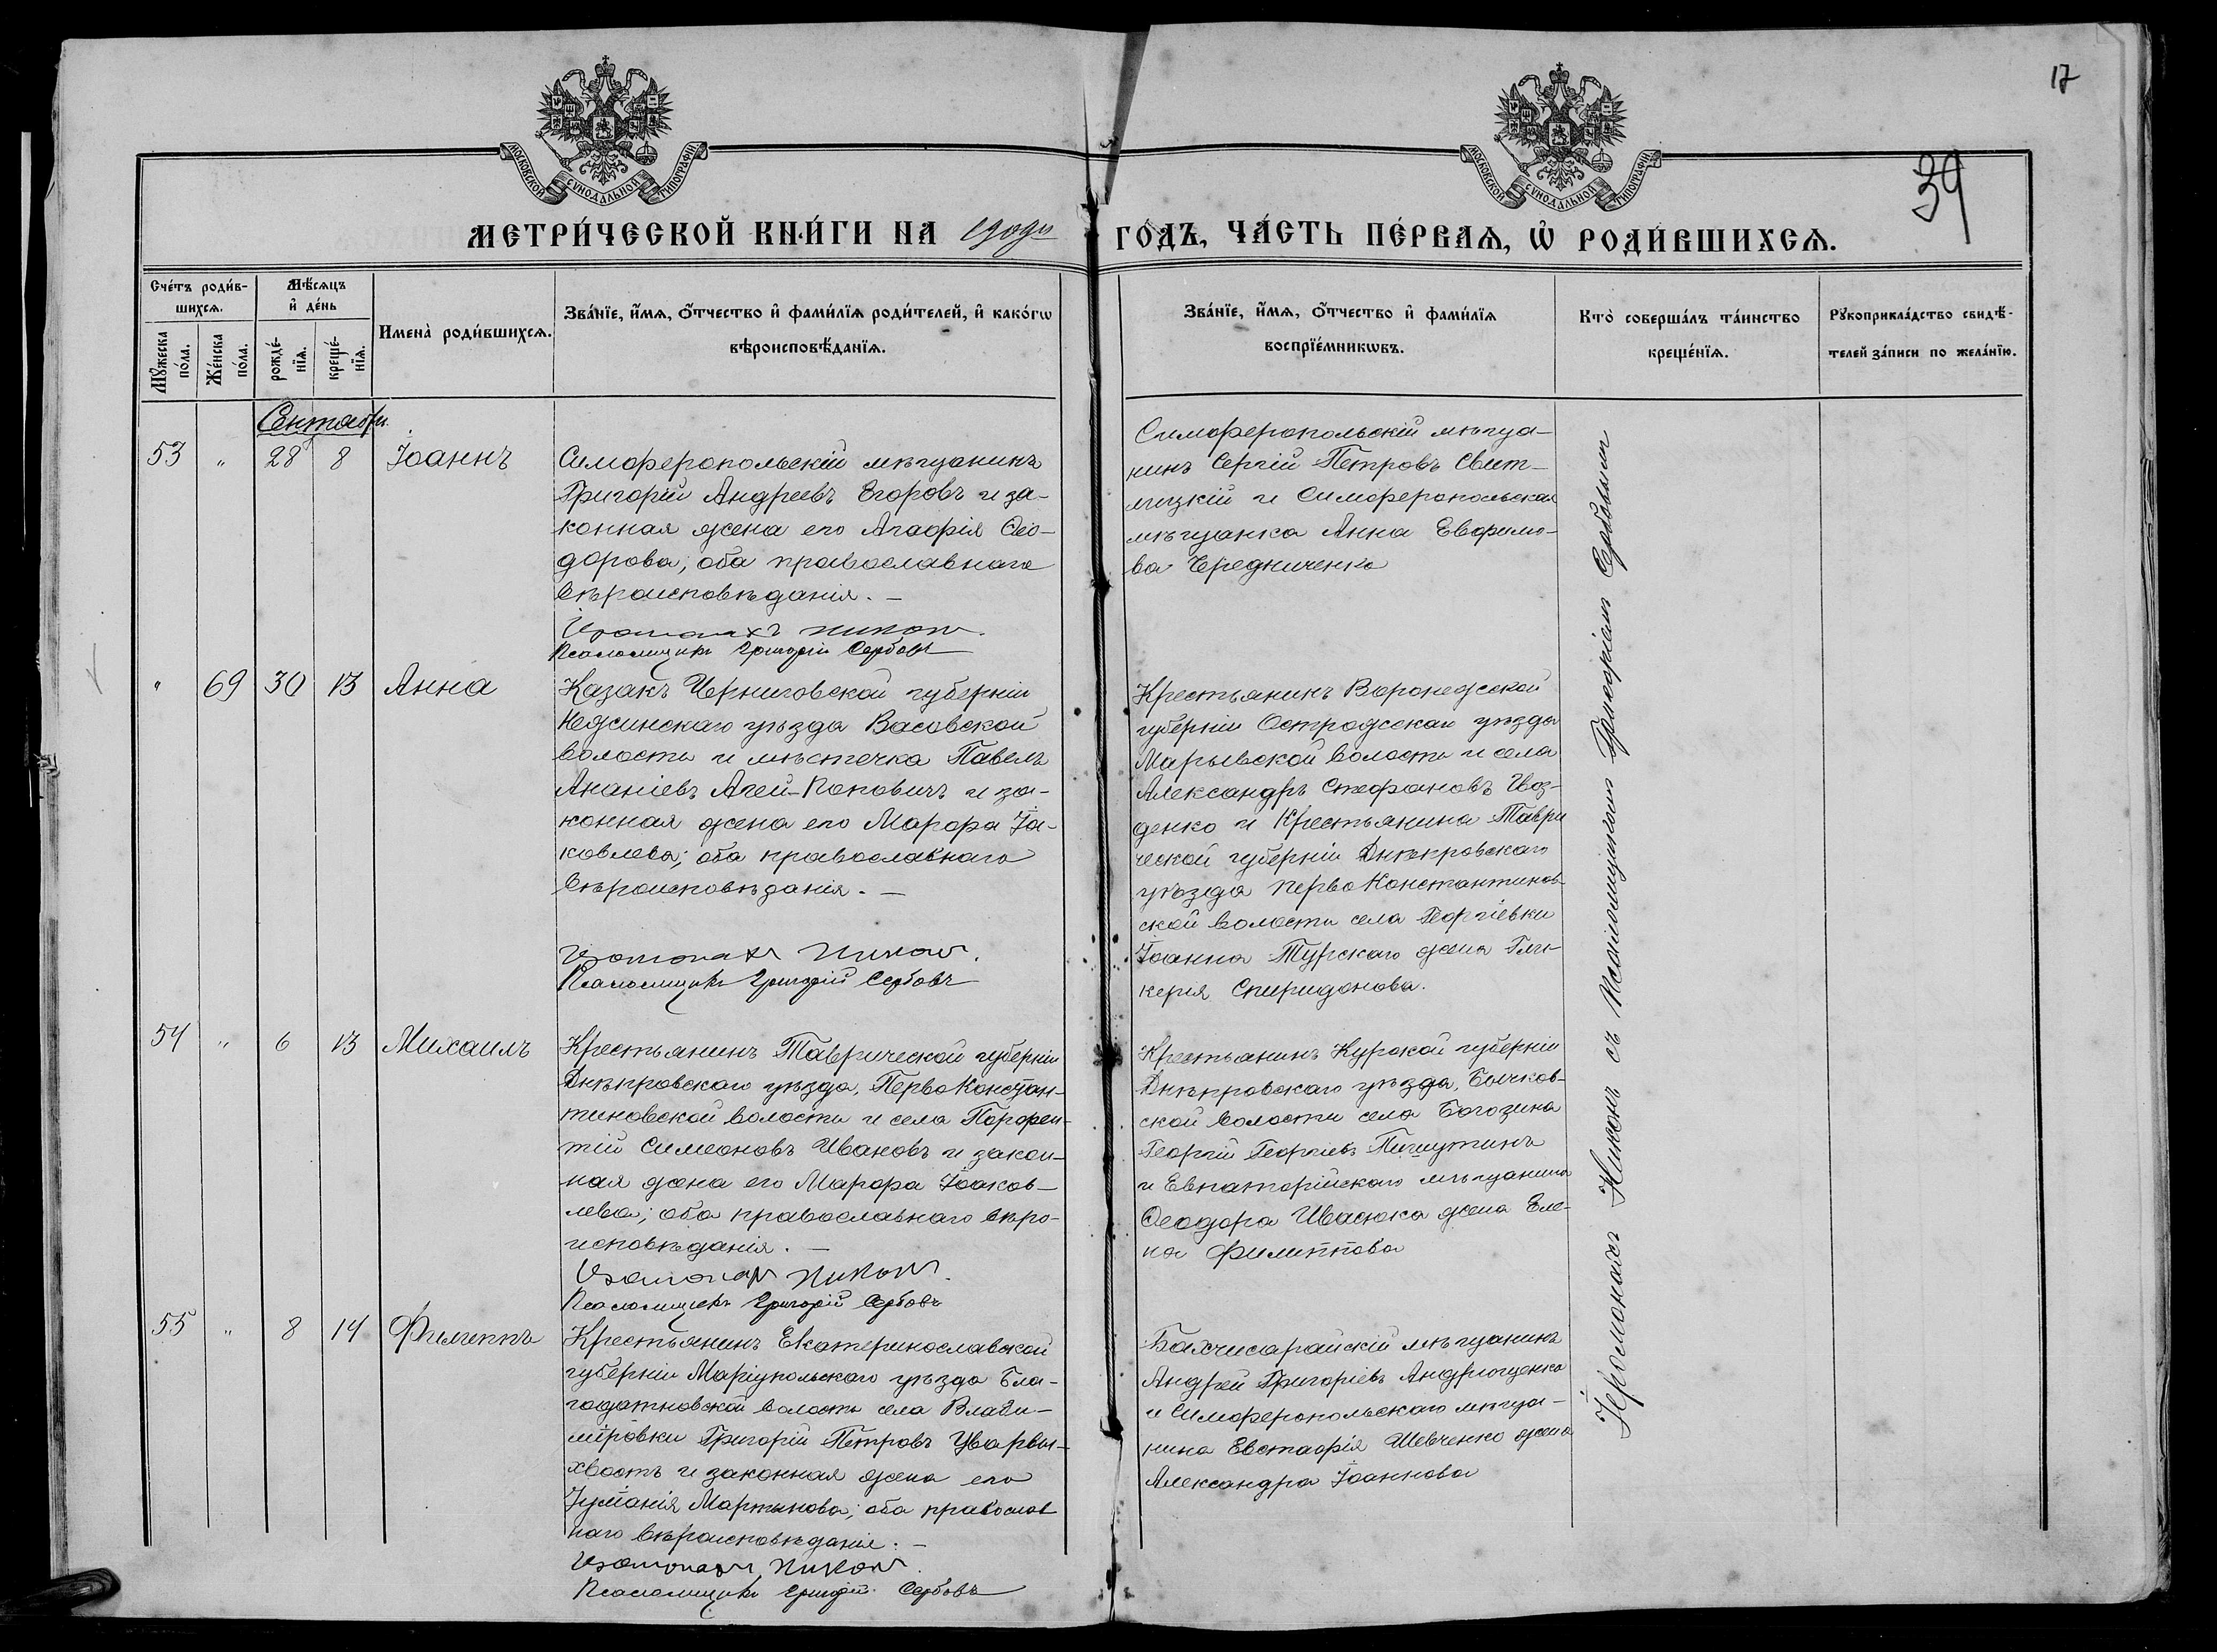 17
39
МОСКОВСКОЙ СѴНОДАЛЬНОЙ ТИПОГРАФІИ
МОСКОВСКОЙ СѴНОДАЛЬНОЙ ТИПОГРАФІИ
МЕТРИ́ЧЕСКОЙ КНИ́ГИ НА
ГО́ДЪ, ЧА́СТЬ ПЕ́РВАѦ, Ѡ҆ РОДИ́ВШИХСѦ.
Сче́тъ роди́в-
шихсѧ.
Мꙋ́жеска по́ла.
Же́нска по́ла.
Мѣ́сѧцъ
и҆ де́нь
рожде́-нїѧ.
креще́-нїѧ.
Имена̀ роди́вшихсѧ.
Зва́нїе, и҆́мѧ, ѻ҆́тчество и҆ фами́лїѧ роди́телей, и҆ како́гѡ
вѣроисповѣ́данїѧ.
Зва́нїе, и҆́мѧ, ѻ҆́тчество и҆ фами́лїѧ
воспрїе́мникѡвъ.
Кто̀ соверша́лъ та́инство
креще́нїѧ.
Рꙋкоприкла́дство свидѣ́-
телей за́писи по жела́нїю.
Сентябрь.
53 " 28 8 Іоаннъ
Симферопольскій мѣщанинъ
Григорій Андреевъ Егоровъ и за-
конная жена его Агафія Ѳео-
дорова; оба православнаго
вѣроисповѣданія. —
Іеромонахъ Никонъ.
Псаломщикъ Григорій Сербовъ
Симферопольскій мѣща-
нинъ Сергій Петровъ Свит-
лицкій и Симферопольская
мѣщанка Анна Евфимо-
ва Чередниченко
" 69 30 13 Анна
Казакъ Черниговской губерніи
Нѣжинскаго уѣзда
волости и мѣстечка Павелъ
Ананіевъ Агей-Поповичъ и за-
конная жена его Марфа Іа-
ковлева; оба православнаго
вѣроисповѣданія. —
Іеромонахъ Никонъ.
Псаломщикъ Григорій Сербовъ
Крестьянинъ Воронежской
губерніи Острожскаго уѣзда
Марьевской волости и села
Александръ Стефановъ Гвоз-
денко и Крестьянина Таври
ческой губерніи Днѣпровскаго
уѣзда Перво Константинов-
ской волости села Георгіевки
Іоанна Турскаго жена Гли-
керія Спиридонова.
54 " 6 13 Михаилъ
Крестьянинъ Таврической губерніи
Днѣпровскаго уѣзда, Перво Констан-
тиновской волости и села Порфен-
тій Симеоновъ Ивановъ и закон-
ная жена его Марфа Іоаков-
лева; оба православнаго вѣро-
исповѣданія. —
Іеромонахъ Никонъ.
Псаломщикъ Григорій Сербовъ
Крестьянинъ Курской губерніи
Днѣпровскаго уѣзда, Бычков-
ской волости села Богозина
Георгій Георгіевъ Пигиутинъ
и Евпаторійскаго мѣщанина
Ѳеодора Ивасюка жена Еле-
на Филиппова
55 " 8 14 Филиппъ
Крестьянинъ Екатеринославской
губерніи Маріупольскаго уѣзда Бла-
годатновской волости села Влади-
міровки Григорій Петровъ Уварвы-
хвостъ и законная жена его
Іуліанія Мартынова; оба православ
наго вѣроисповѣданія. —
Іеромонахъ Никонъ.
Псаломщикъ Григорій Сербовъ
Бахчисарайскій мѣщанинъ
Андрей Григоріевъ Андрющенко
и Симферопольскаго мѣща-
нина Евстафія Шевченко жена
Александра Іоаннова
Іеромонахъ Никонъ съ Псаломщикомъ Григоріемъ Сербовымъ